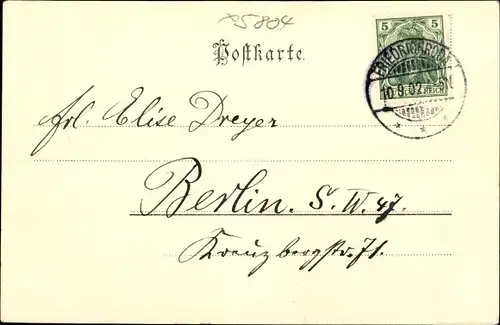 25804
Postkarte.
5 5
REICH
10.9.02.
Frl. Elise Dreyer
Berlin. S. W. 47.
Kreuzbergstr. 71.